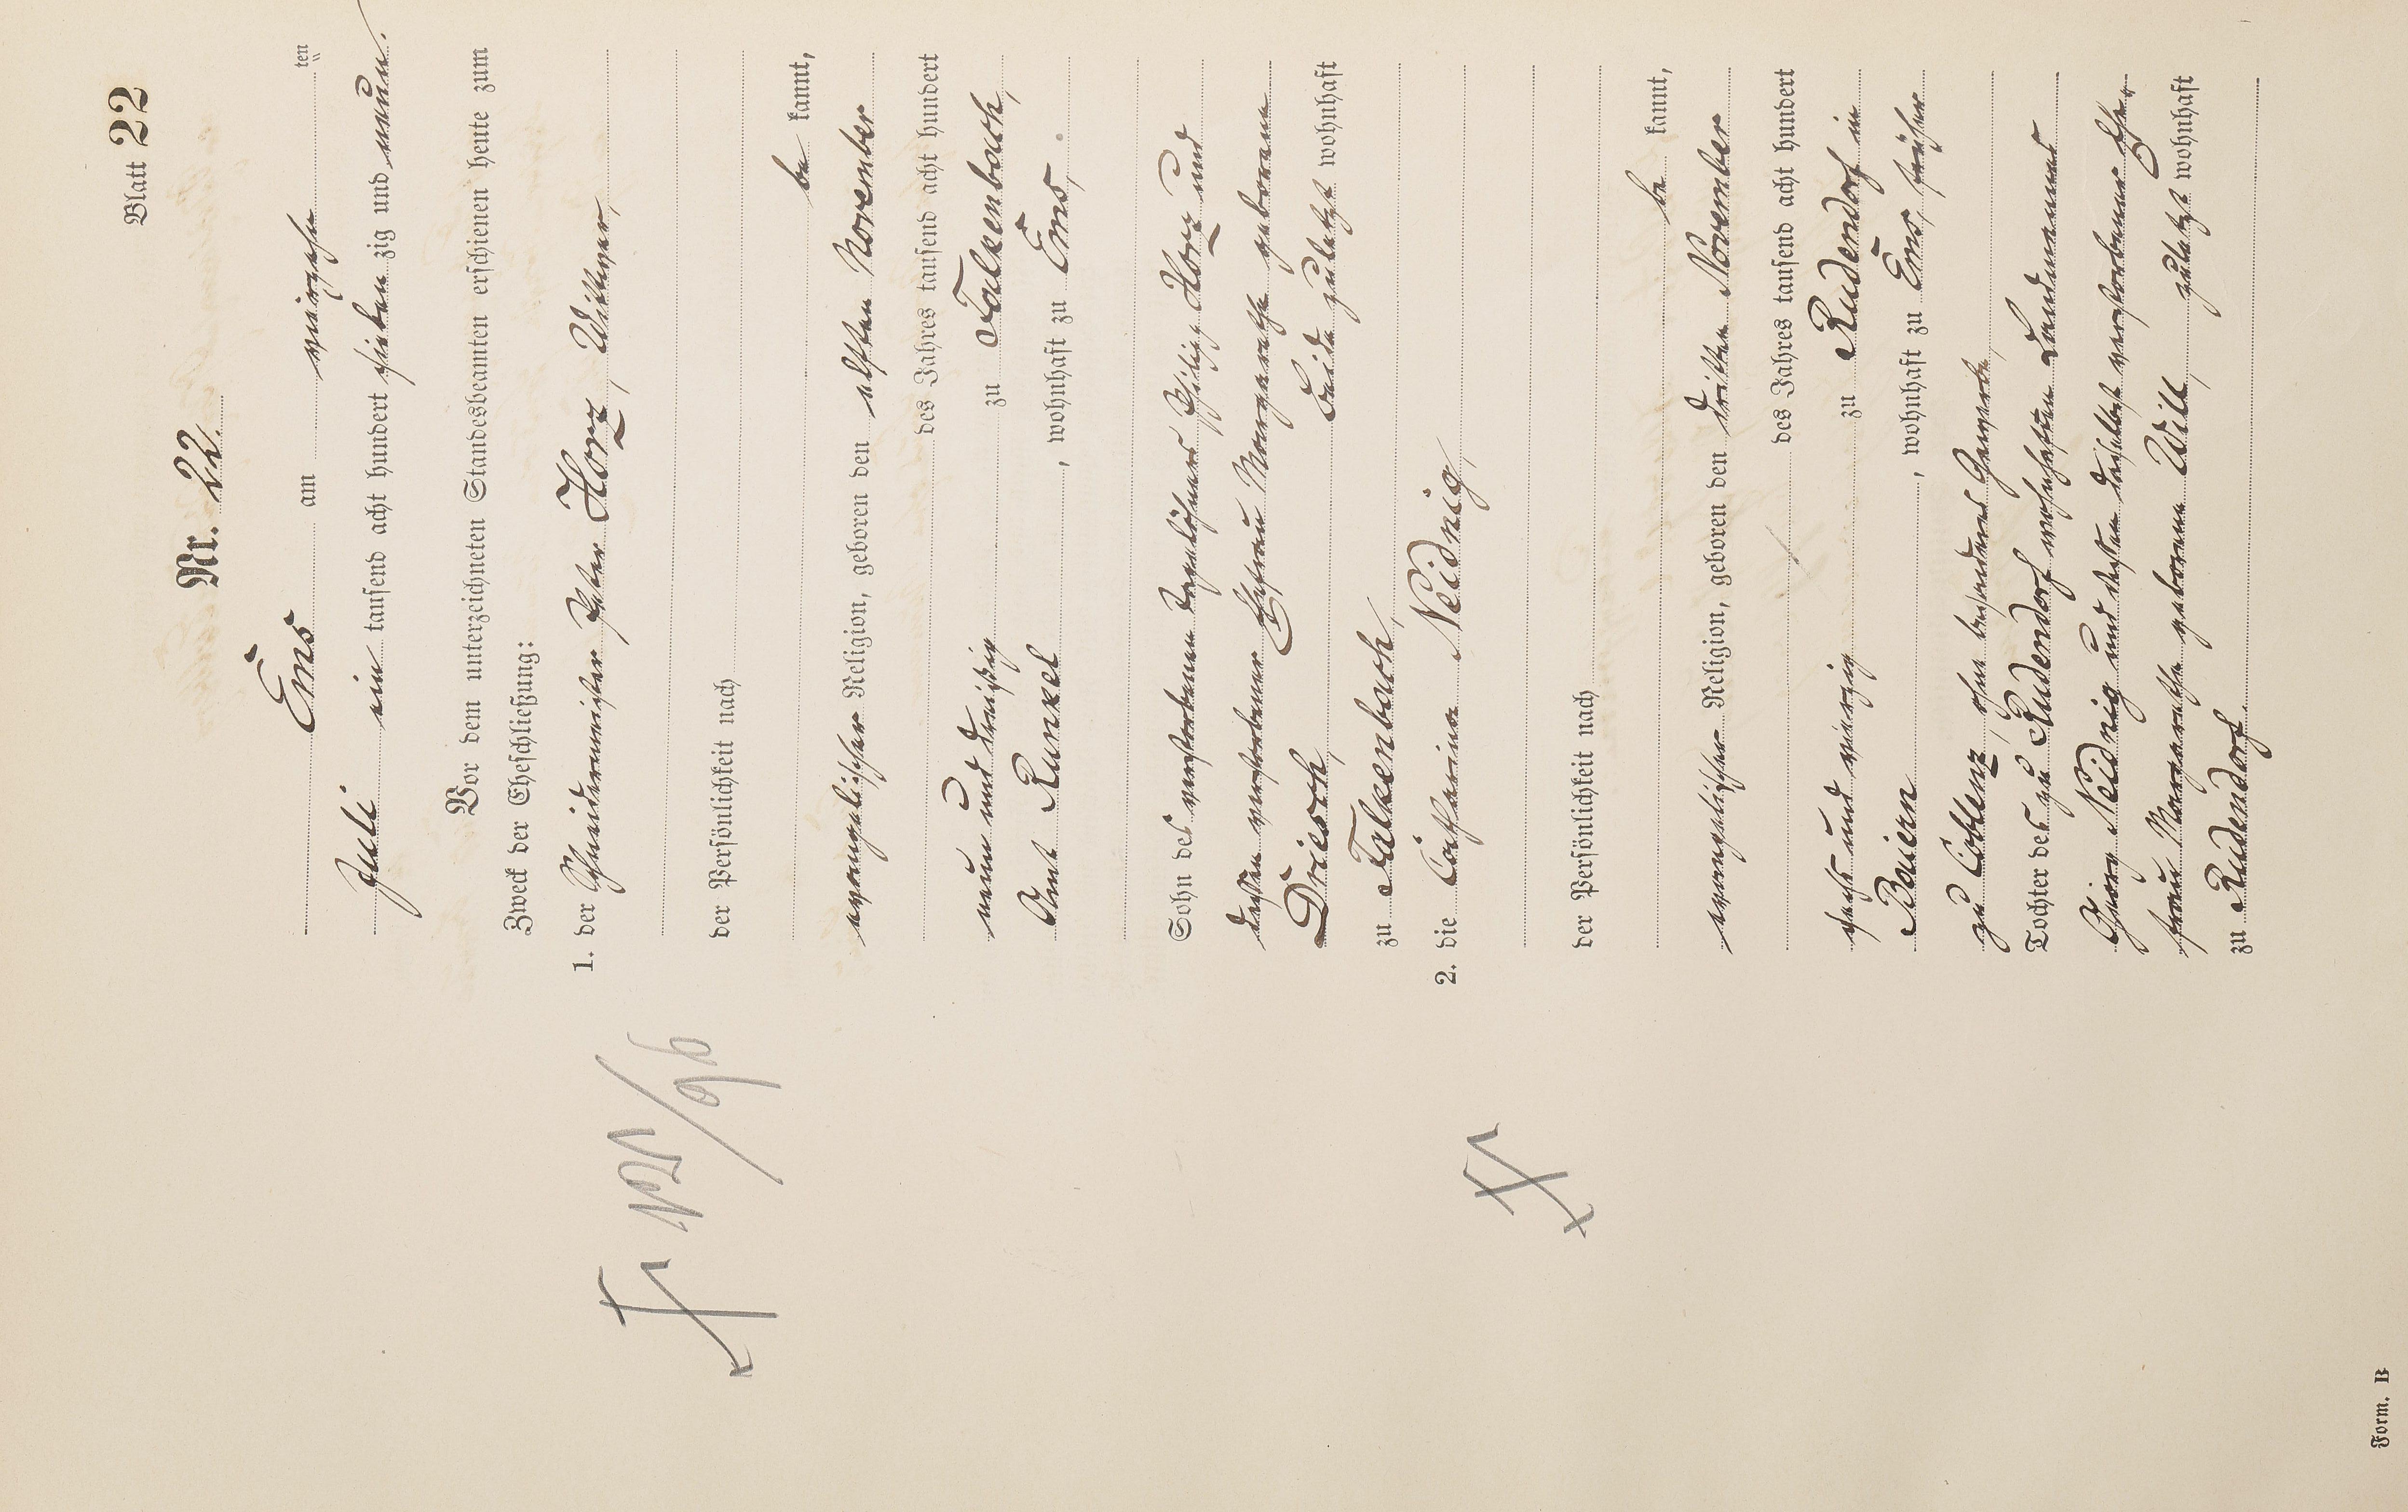 Blatt 22
Nr. 22.
Ems am vierzehn ten
Juli ein tausend acht hundert sieben zig und neun.
Vor dem unterzeichneten Standesbeamten erschienen heute zum
Zweck der Eheschließung:
1. der Schneidermeister Peter Horz, Wittwer,
der Persönlichkeit nach
be kannt,
evangelischer Religion, geboren den elften November
des Jahres tausend acht hundert
neun und dreißig zu Falkenbach,
Amt Runkel, wohnhaft zu Ems,
Sohn des verstorbenen Taglöhners Philipp Horz und
dessen verstorbener Ehefrau Margarethe geborene
Driesch, beide zuletzt wohnhaft
zu Falkenbach,
2. die Catharina Neidnig,
der Persönlichkeit nach
be kannt,
evangelischer Religion, geboren den dritten November
des Jahres tausend acht hundert
sechs und vierzig zu Rudendorf in
Baiern, wohnhaft zu Ems, früher
zu Coblenz, ohne besonderes Gewerbe,
Tochter des zu Rudendorf wohnhaften Landmannes
Georg Neidnig und dessen daselbst verstorbener Ehe-
frau Margarethe geborene Will, zuletzt wohnhaft
zu Rudendorf.
Form. B